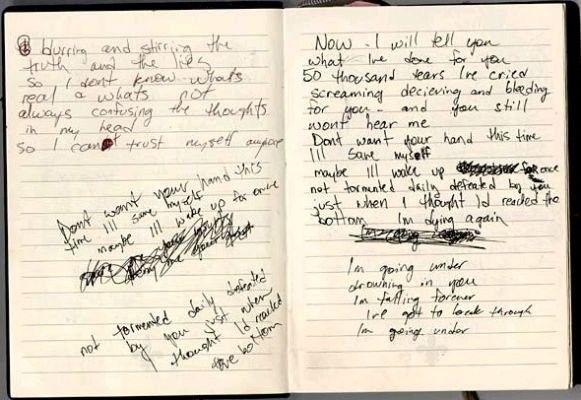 blurring and stirring the
truth and the lies
so I dont know whats
real & whats not
always confusing the thoughts
in my head
So I cant trust myself anymore
Dont want your hand this
time Ill save myself
maybe Ill wake up for once
not tormented daily defeated
by you just when
thought Id reached
the bottom
Now I will tell you
what Ive done for you
50 thousand tears Ive cried
screaming decieving and bleeding
for you - and you still
wont hear me
Dont want your hand this time
Ill save myself
maybe Ill wake up for once
not tormented daily defeated by you
just when I thought Id reached the
bottom Im dying again
Im going under
drowning in you
Im falling forever
Ive got to break through
Im going under